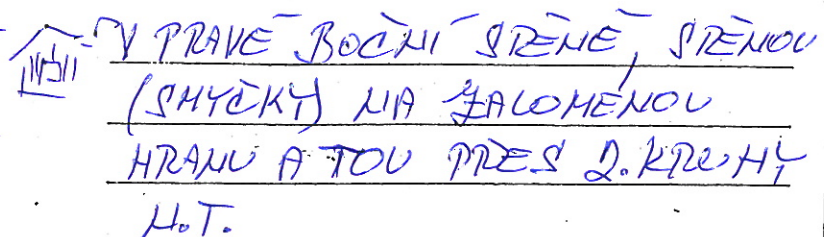 V PRAVÉ BOČNÍ STĚNĚ, STĚNOU
(SMYČKY) NA ZALOMENOU
HRANU A TOU PŘES 2. KRUHY
H.T.